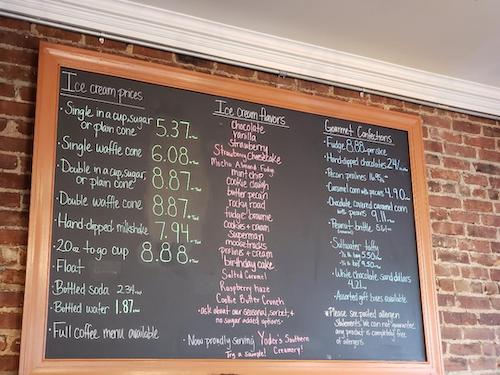 Ice cream prices
· Single in a cup, sugar
or plain cone 5.37
· Single waffle cone 6.08
· Double in a cup, sugar,
or plain cone 8.87
· Double waffle cone 8.87
· Hand-dipped milkshake 7.94
· 20oz to-go cup 8.88
· Float
· Bottled soda 2.34
· Bottled water 1.87
· Full coffee menu available
Ice cream flavors
Chocolate
Vanilla
Strawberry
Strawberry Cheesecake
Mocha Almond Fudge
mint chip
cookie dough
butter pecan
rocky road
fudge brownie
cookies + cream
Superman
moosetracks
pralines + cream
birthday cake
Salted Caramel
Raspberry haze
Cookie Butter Crunch
· ask about our seasonal, sorbet, +
no sugar added options ·
· Now proudly serving Yoder's Southern
Try a sample! Creamery!
Gourmet Confections
· Fudge 8.88 per slice
· Hand-dipped chocolates 24/
· Pecan pralines
· Caramel corn with pecans 4.90
· Chocolate covered caramel corn
with pecans 9.11
· Peanut brittle
· Saltwater taffy
· 1/4 lb bag 5.50
· White chocolate sand dollars
4.21
· Assorted gift boxes available
Please see posted allergen
statements. We can not guarantee
any product is completely free
of allergens.